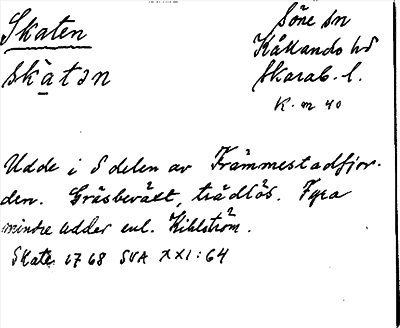 Skaten
skàtən
Söne sn
Kållands hd
Skarab. l.
K. m 40
Udde i S delen av Främmestadfjor-
den. Gräsbeväxt, trädlös. Fyra
mindre uddar enl. Kihlström.
Skate 1768 SVA XXI:64